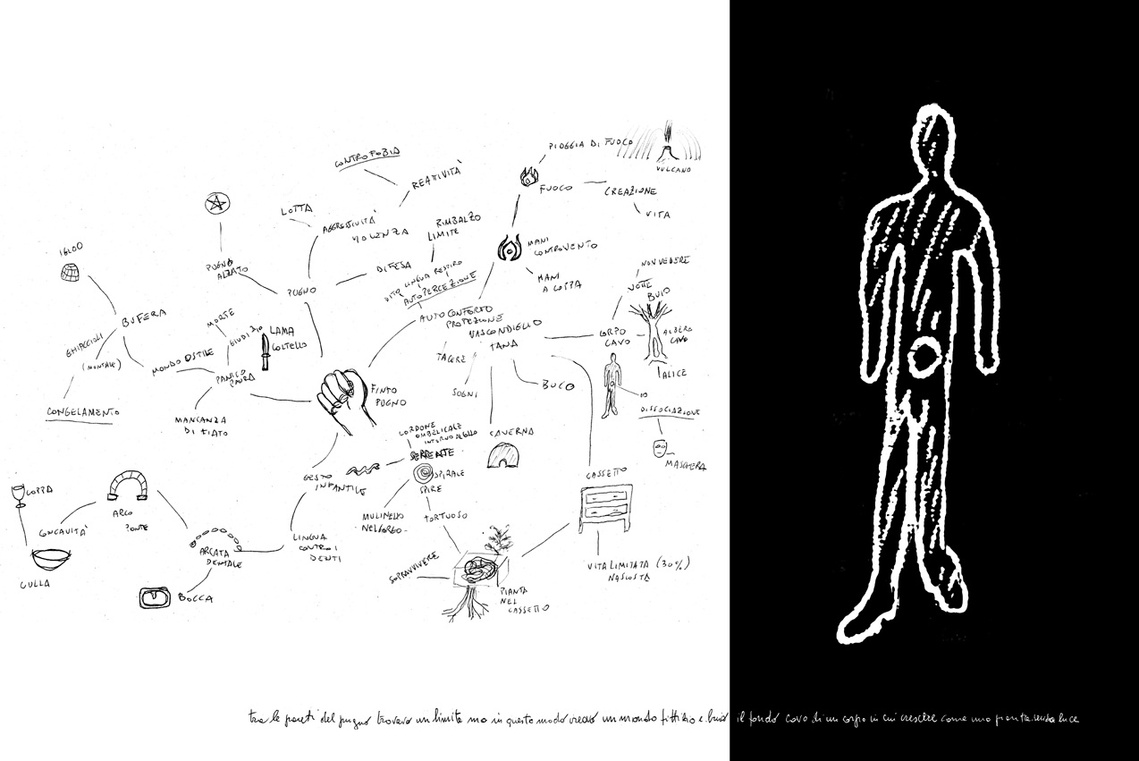 CONTROFOBIA
REATTIVITÀ
PIOGGIA DI FUOCO
VULCANO
FUOCO
CREAZIONE
VITA
LOTTA
AGGRESSIVITÀ
VIOLENZA
RIMBALZO
LIMITE
MANI
CONTROVENTO
MANI
A COPPA
DIFESA
DITO LINGUA RESPIRO
AUTOPERCEZIONE
PUGNO
ALZATO
PUGNO
IGLOO
BUFERA
GHIACCIOLI
(MONTALE)
CONGELAMENTO
MONDO OSTILE
MORTE
GIUDIZIO
LAMA
COLTELLO
PANICO
PAURA
MANCANZA
DI FIATO
AUTOCONFORTO
PROTEZIONE
NASCONDIGLIO
TANA
TACERE
SOGNI
BUCO
NON VEDERE
NOTTE
BUIO
CORPO
CAVO
ALBERO
CAVO
ALICE
IO
DISSOCIAZIONE
MASCHERA
FINTO
PUGNO
CORDONE
OMBELICALE
INTORNO AL COLLO
SERPENTE
SPIRALE
SPIRE
CAVERNA
CASSETTO
GESTO
INFANTILE
MULINELLO
NEL GORGO
TORTUOSO
LINGUA
CONTRO I
DENTI
COPPA
ARCO
PONTE
CONCAVITÀ
CULLA
ARCATA
DENTALE
BOCCA
SOPRAVVIVERE
PIANTA
NEL
CASSETTO
VITA LIMITATA (30%)
NASCOSTA
tra le pareti del pugno trovavo un limite ma in questo modo creavo un mondo fittizio e buio il fondo cavo di un corpo in cui crescere come una pianta senza luce